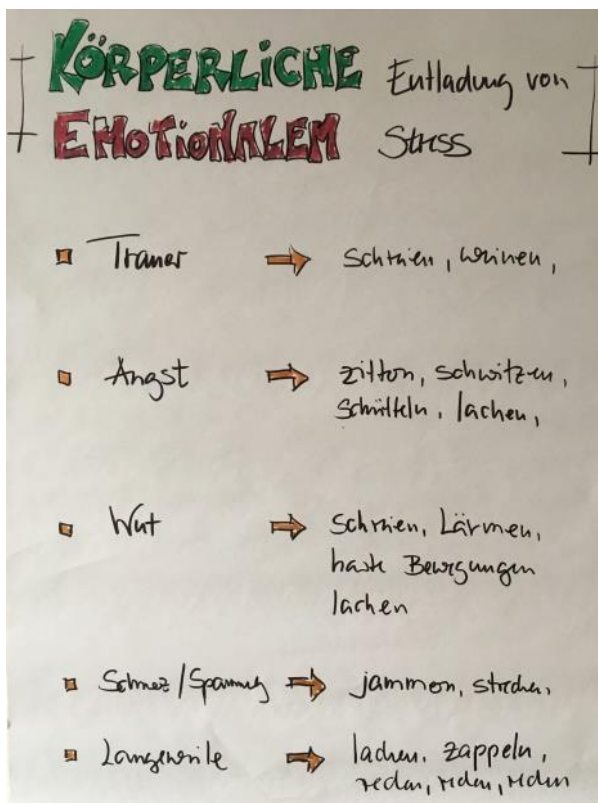 KÖRPERLiCHE Entladung von
EMOTiONALEM Stress
Trauer schreien, weinen,
Angst zittern, schwitzen,
schütteln, lachen,
Wut schreien, Lärmen,
harte Bewegungen
lachen
Schmez/Spannung jammern, strecken,
Langeweile lachen, zappeln,
reden, reden, reden